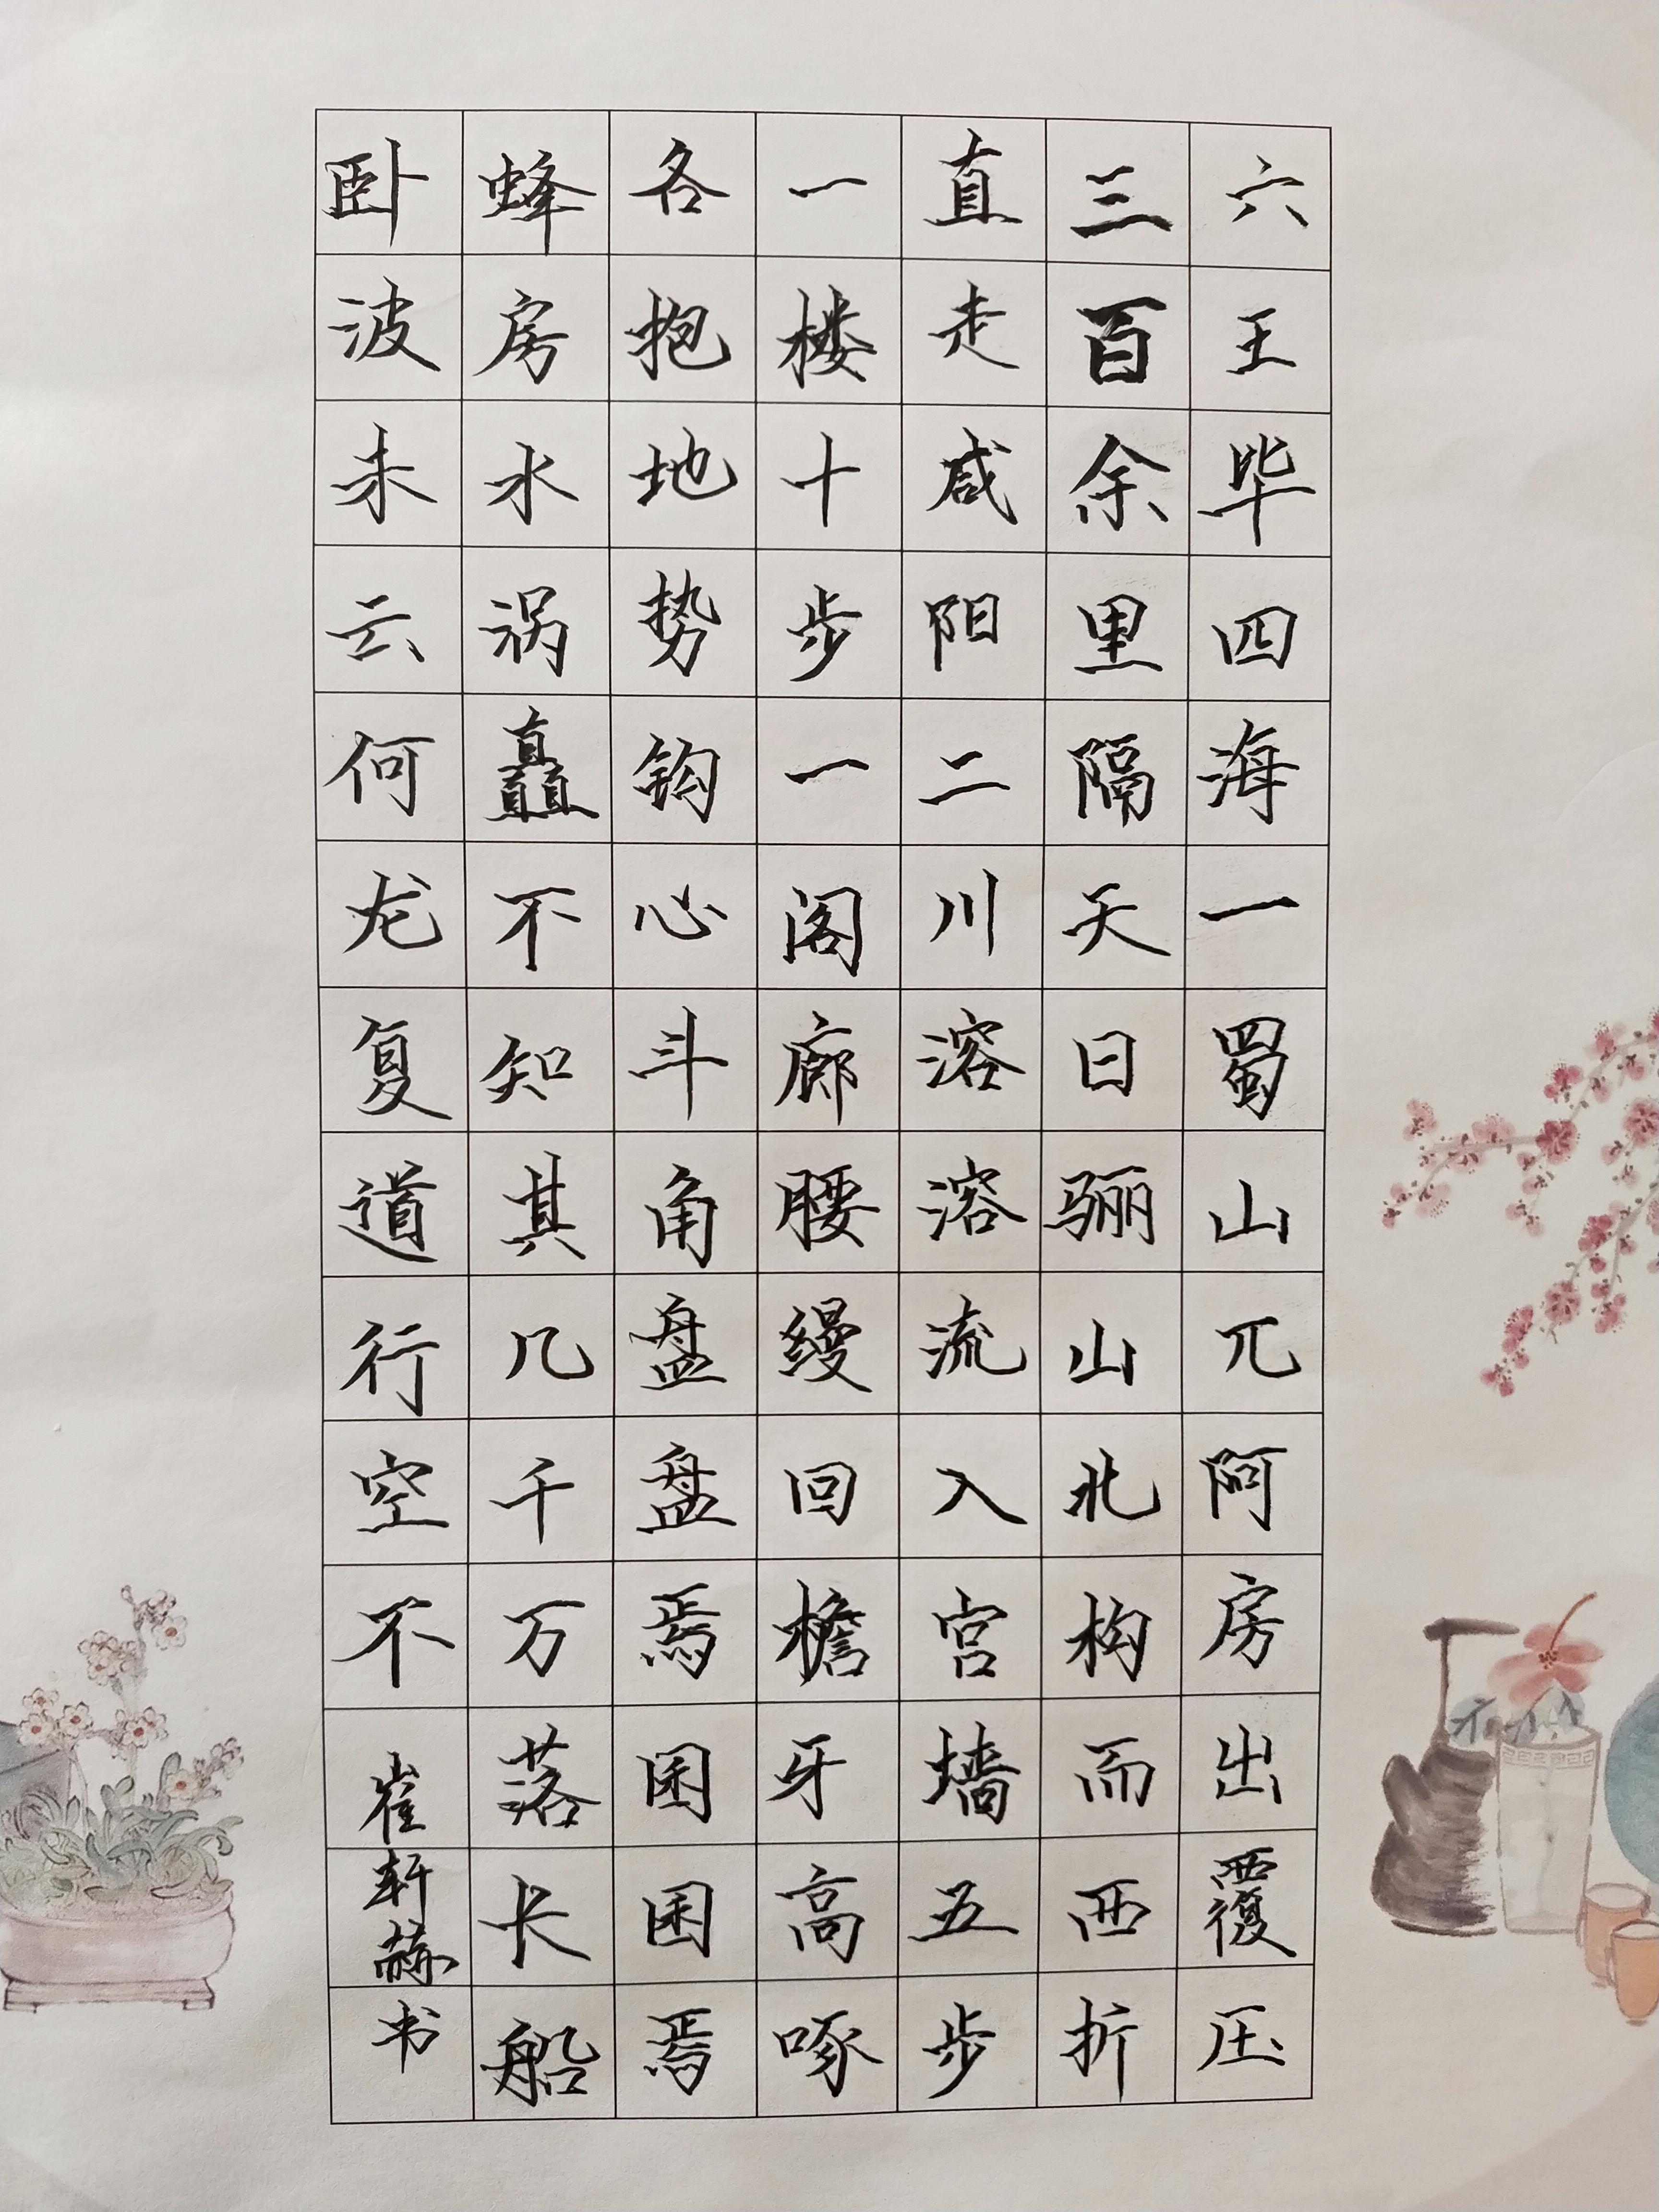 六王毕四海一蜀山兀阿房出覆压
三百余里隔天日骊山北构而西折
直走咸阳二川溶溶流入宫墙五步
一楼十步一阁廊腰缦回檐牙高啄
各抱地势钩心斗角盘盘焉囷囷焉
蜂房水涡矗不知其几千万落长船
卧波未云何龙复道行空不
崔轩赫书